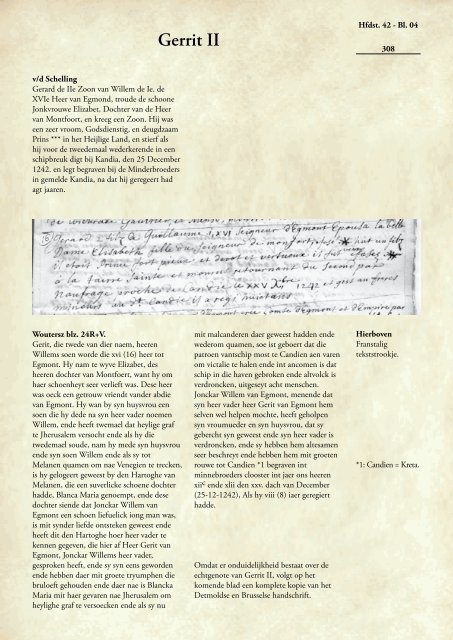 Hfdst. 42 - Bl. 04
Gerrit II
308
v/d Schelling
Gerard de IIe Zoon van Willem de Ie. de
XVIe Heer van Egmond, troude de schoone
Jonkvrouwe Elizabet, Dochter van de Heer
van Montfoort, en kreeg een Zoon. Hij was
een zeer vroom, Godsdienstig, en deugdzaam
Prins *** in het Heijlige Land, en stierf als
hij voor de tweedemaal wederkerende in een
schipbreuk digt bij Kandia, den 25 December
1242. en legt begraven bij de Minderbroeders
in gemelde Kandia, na dat hij geregeert had
agt jaaren.
Gerard 2 filz de Guillaume 1, xvi Seigneur d'Egmont Epousa la belle
Dame Elisabeth fille du Seigneur de monfort
il etoit Prince fort pieux et devot et vertueux il fut
a la Terre Sainte et mourut retournant du
Naufrage proche de Candie le xxv 1242 et gist au freres
mineurs du Candie a regi huict ans
Woutersz blz. 24R+V.
Gerit, die twede van dier naem, heeren
Willems soen worde die xvi (16) heer tot
Egmont. Hy nam te wyve Elizabet, des
heeren dochter van Montfoert, want hy om
haer schoenheyt seer verlieft was. Dese heer
was oeck een getrouw vriendt vander abdie
van Egmont. Hy wan by syn huysvrou een
soen die hy dede na syn heer vader noemen
Willem, ende heeft twemael dat heylige graf
te Jherusalem versocht ende als hy die
twedemael soude, nam hy mede syn huysvrou
ende syn soen Willem ende als sy tot
Melanen quamen om nae Venegien te trecken,
is hy gelogeert geweest by den Hartoghe van
Melanen, die een suverlicke schoene dochter
hadde, Blanca Maria genoempt, ende dese
dochter siende dat Jonckar Willem van
Egmont een schoen liefuelick iong man was,
is mit synder liefde ontsteken geweest ende
heeft dit den Hartoghe hoer heer vader te
kennen gegeven, die hier af Heer Gerit van
Egmont, Jonckar Willems heer vader,
gesproken heeft, ende sy syn eens geworden
ende hebben daer mit groete tryumphen die
bruloeft gehouden ende daer nae is Blancka
Maria mit haer gevaren nae Jherusalem om
heylighe graf te versoecken ende als sy nu
mit malcanderen daer geweest hadden ende
wederom quamen, soe ist geboert dat die
patroen vantschip most te Candien aen varen
om victalie te halen ende int ancomen is dat
schip in die haven gebroken ende alvolck is
verdroncken, uitgeseyt acht menschen.
Jonckar Willem van Egmont, menende dat
syn heer vader heer Gerit van Egmont hem
selven wel helpen mochte, heeft geholpen
syn vroumueder en syn huysvrou, dat sy
gebercht syn geweest ende syn heer vader is
verdroncken, ende sy hebben hem altesamen
seer beschreyt ende hebben hem mit groeten
rouwe tot Candien *1 begraven int
minnebroeders clooster int jaer ons heeren
xiiᶜ ende xlii den xxv. dach van December
(25-12-1242), Als hy viii (8) iaet geregiert
hadde.
Omdat er onduidelijkheid bestaat over de
echtgenote van Gerrit II, volgt op het
komende blad een complete kopie van het
Detmoldse en Brusselse handschrift.
Hierboven
Franstalig
tekststrookje.
*1: Candien = Kreta.